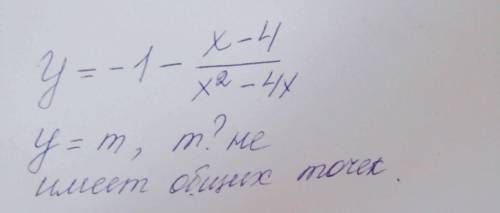 y = -1 - \frac{x-4}{x^2-4x}
y = m, m? не
имеет общих точек.